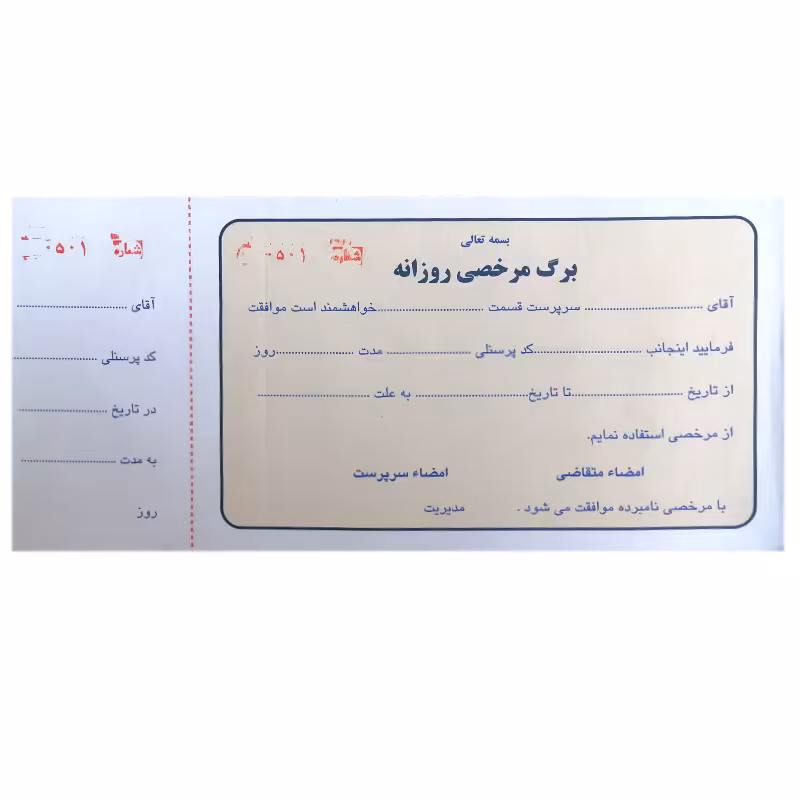 بسمه تعالی
برگ مرخصی روزانه
شماره ۰۵۰۱
آقای .............................. سرپرست قسمت ..............................خواهشمند است موافقت
فرمایید اینجانب ..............................کد پرسنلی ...................... مدت ......................روز
از تاریخ ..............................تا تاریخ.............................. به علت ..............................
از مرخصی استفاده نمایم.
امضاء متقاضی امضاء سرپرست
با مرخصی نامبرده موافقت می شود . مدیریت
شماره ۰۵۰۱
آقای ..............................
کد پرسنلی ......................
در تاریخ ......................
به مدت ......................
روز